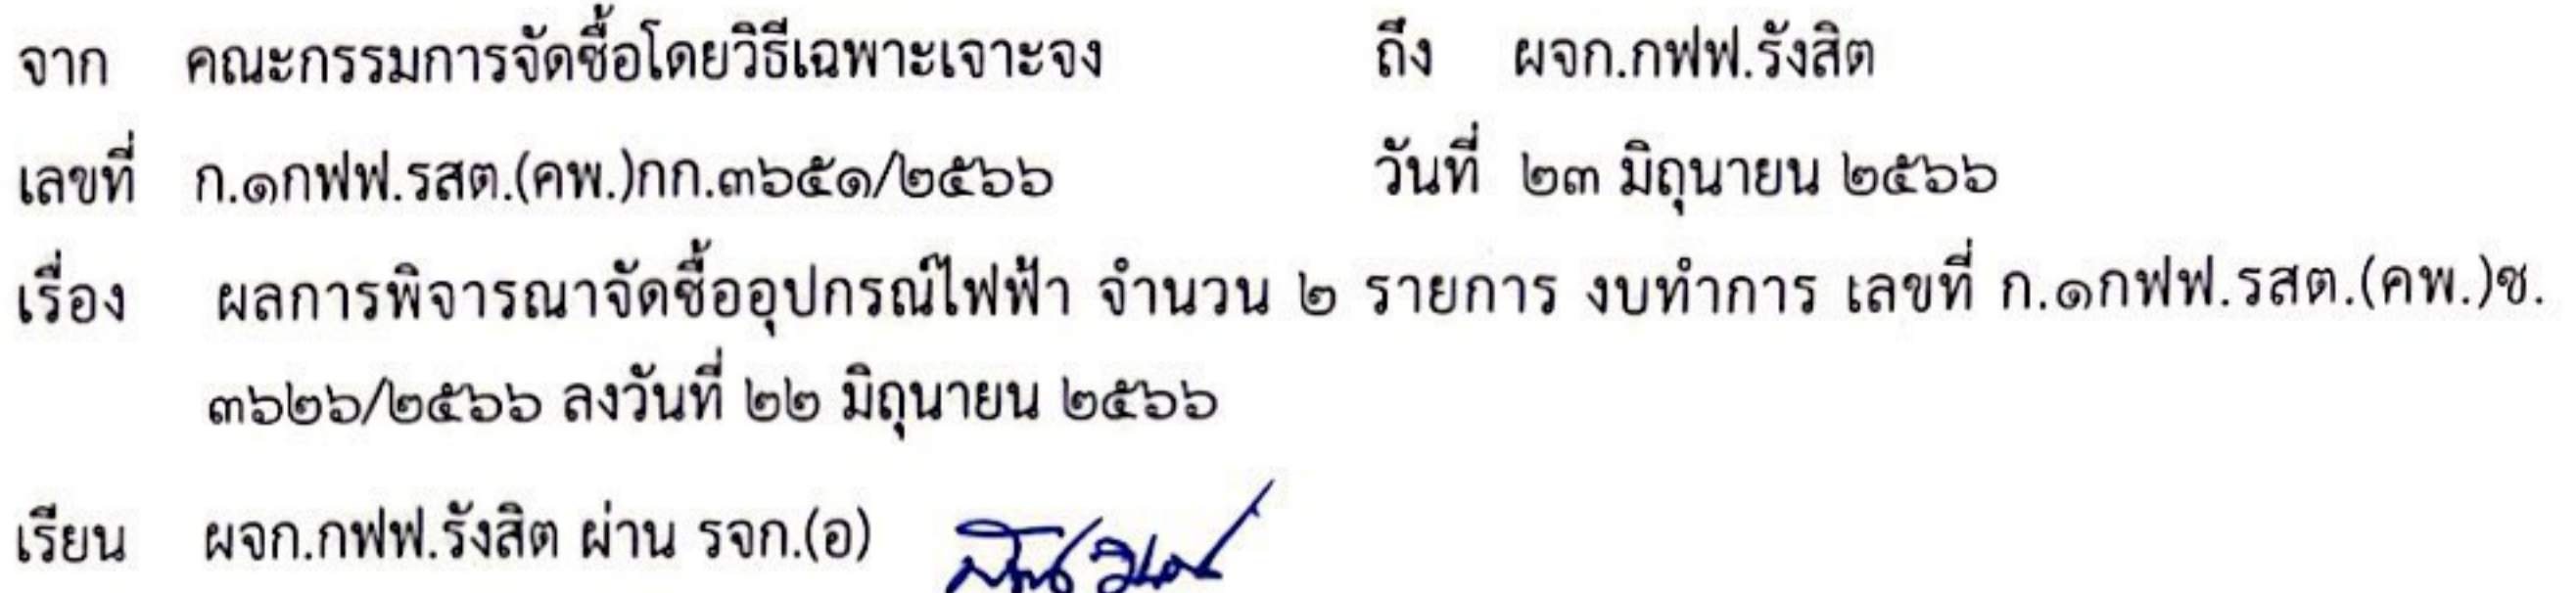 จาก คณะกรรมการจัดซื้อโดยวิธีเฉพาะเจาะจง ถึง ผจก.กฟฟ.รังสิต
เลขที่ ก.๑กฟฟ.รสต.(คพ.)กก.๓๖๕๑/๒๕๖๖ วันที่ ๒๓ มิถุนายน ๒๕๖๖
เรื่อง ผลการพิจารณาจัดซื้ออุปกรณ์ไฟฟ้า จำนวน ๒ รายการ งบทำการ เลขที่ ก.๑กฟฟ.รสต.(คพ.)ซ.
๓๖๒๖/๒๕๖๖ ลงวันที่ ๒๒ มิถุนายน ๒๕๖๖
เรียน ผจก.กฟฟ.รังสิต ผ่าน รจก.(อ)